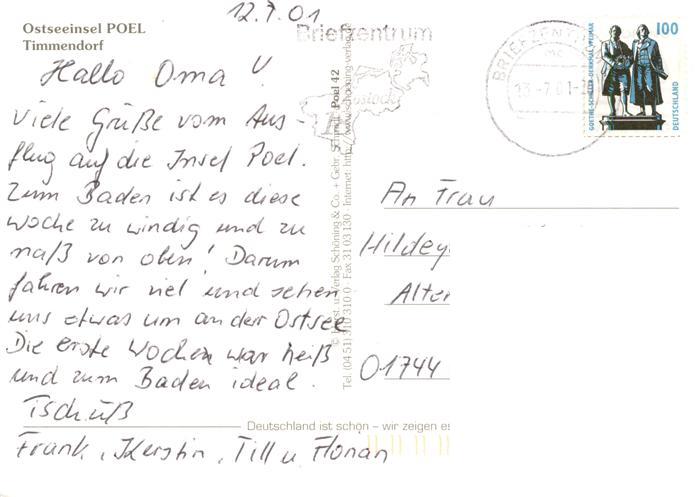 12.7.01
Ostseeinsel POEL
Timmendorf
Briefzentrum
Rostock
BRIEFZENTR
13.-7.01-2
GOETHE-SCHILLER-DENKMAL WEIMAR
100
DEUTSCHLAND
Hallo Oma!
Viele Grüße vom Aus-
flug auf die Insel Poel.
Zum Baden ist es diese
Woche zu windig und zu
naß von oben! Darum
fahren wir viel und sehen
uns etwas um an der Ostsee
Die erste Wochen war heiß
und zum Baden ideal.
Tschüß
Frank, Kerstin, Till u. Florian
Poel 42
Verlag Schöning & Co. + Gebr.
Tel. (04 51) 310 310 0 · Fax 31 03 130 · Internet:
An Frau
Hildeg
Alte
01744
Deutschland ist schön – wir zeigen es